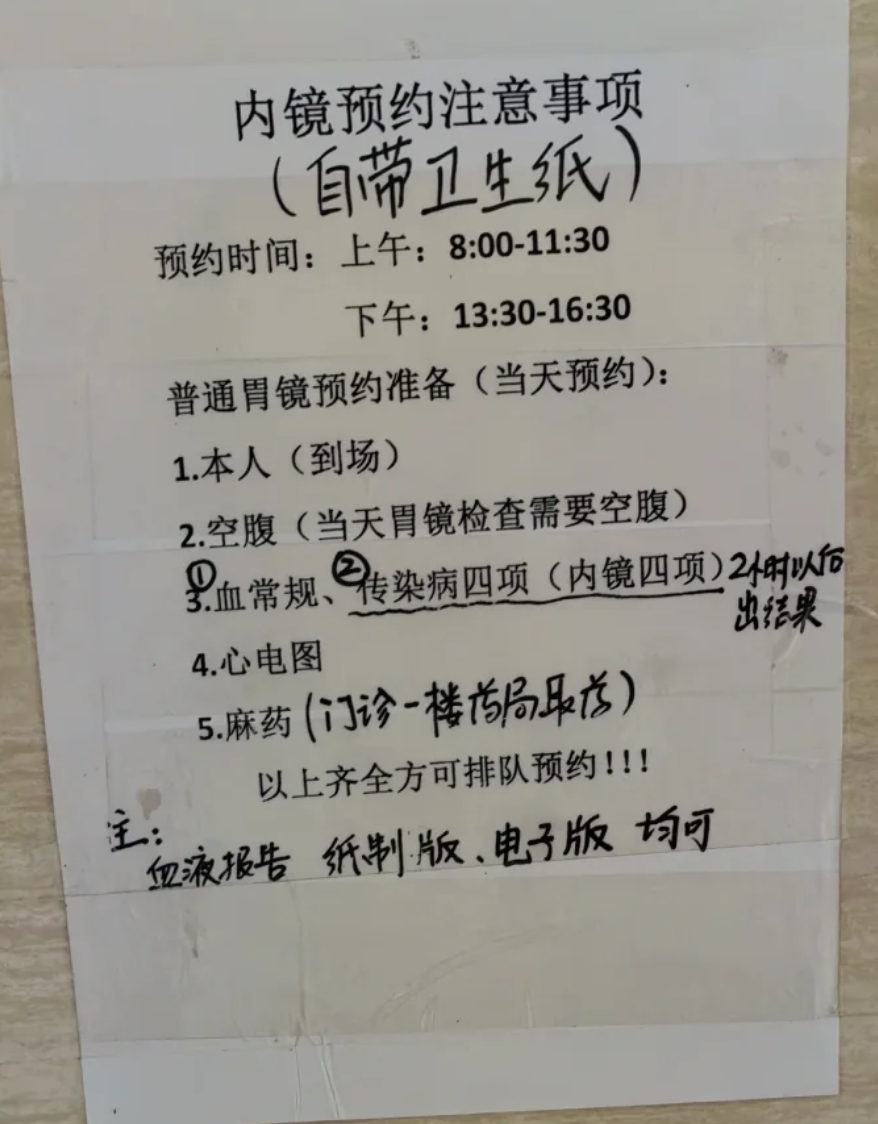 内镜预约注意事项
（自带卫生纸）
预约时间：上午：8:00-11:30
下午：13:30-16:30
普通胃镜预约准备（当天预约）：
1.本人（到场）
2.空腹（当天胃镜检查需要空腹）
3.①血常规、②传染病四项（内镜四项）2小时以后
出结果
4.心电图
5.麻药（门诊一楼药局取药）
以上齐全方可排队预约！！！
注：
血液报告 纸制版、电子版 均可